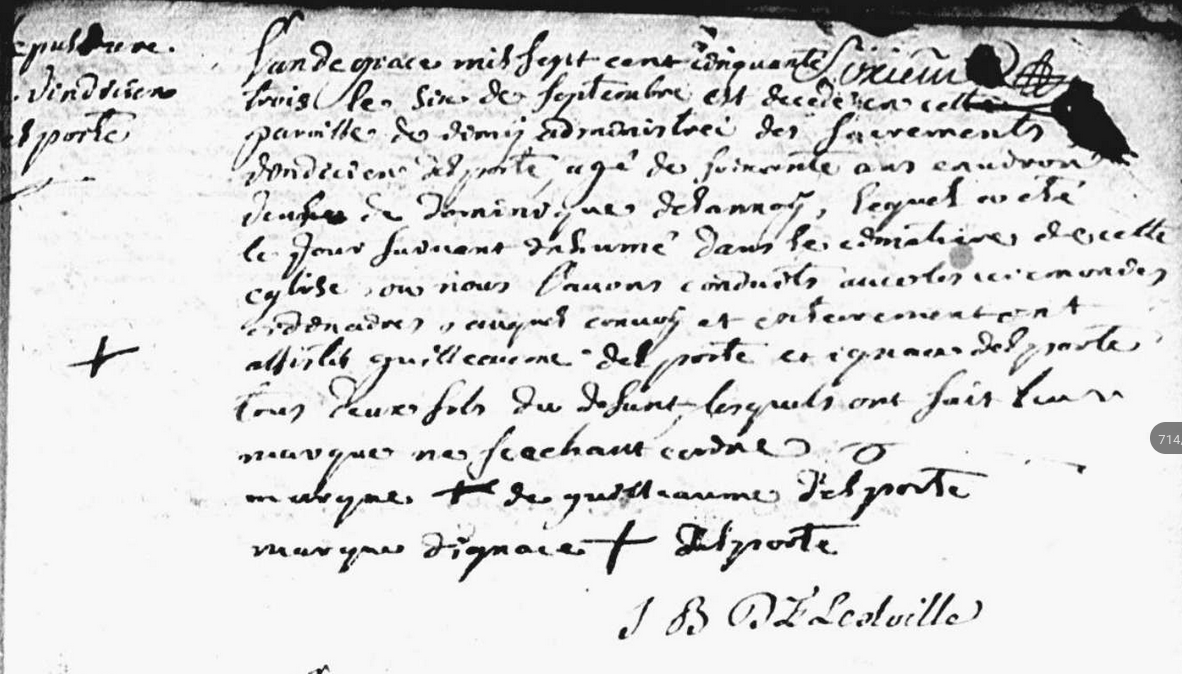 sepulture
vindicien
delporte
L'an de grace mil sept cent cinquante
trois le six de septembre est decedé en cette
paroisse de administrée des sacrements
vindicien delporte agé de soixante ans environ
veufve de Dominique delannoy, lequel a eté
le jour suivant inhumé dans le cimetiere de cette
eglise ou nous l'avons conduits avec les ceremonies
ordinaires, auquel convoy et enterrement ont
assistés guilleaume delporte et ignace delporte
tous deux fils du defunt, lesquels ont fait leur
marque ne scachant ecrire
marque + de guilleaume Delporte
marque d'ignace + Delporte
J B DE